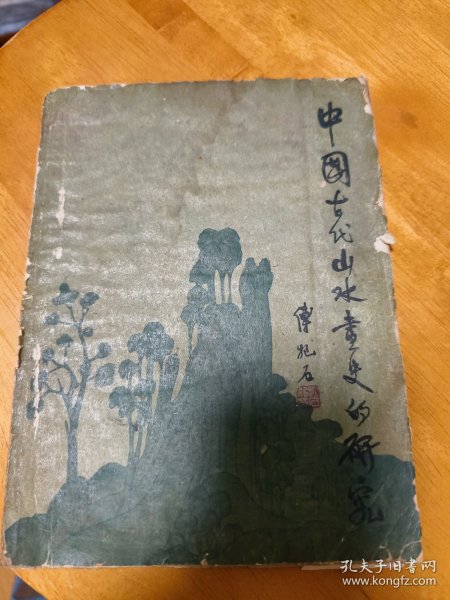 中國古代山水畫史的研究
傅抱石
孔夫子旧书网
www.kongfz.com